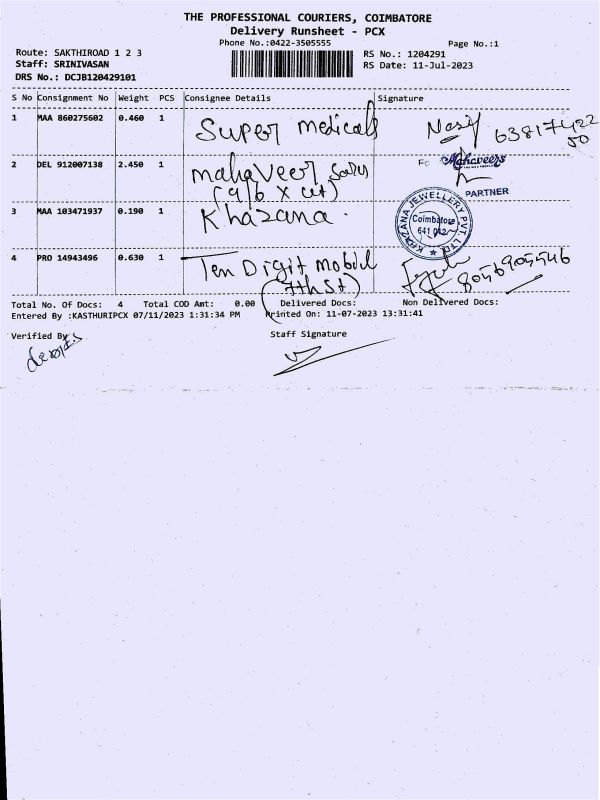 THE PROFESSIONAL COURIERS, COIMBATORE
Delivery Runsheet - PCX
Phone No.:0422-3505555 Page No.:1
Route: SAKTHIROAD 1 2 3 RS No.: 1204291
Staff: SRINIVASAN RS Date: 11-Jul-2023
DRS No.: DCJB120429101
S No Consignment No Weight PCS Consignee Details Signature
1 MAA 860275602 0.460 1 Super medicals
2 DEL 912007138 2.450 1 mahaveer
Mahaveers
PARTNER
3 MAA 103471937 0.190 1 Khazana.
KHAZANA JEWELLERY PVT. LTD.
Coimbatore
641 012
4 PRO 14943496 0.630 1 Ten Digit mobil
(7th St)
Total No. Of Docs: 4 Total COD Amt: 0.00 Delivered Docs: Non Delivered Docs:
Entered By :KASTHURIPCX 07/11/2023 1:31:34 PM Printed On: 11-07-2023 13:31:41
Verified By Staff Signature